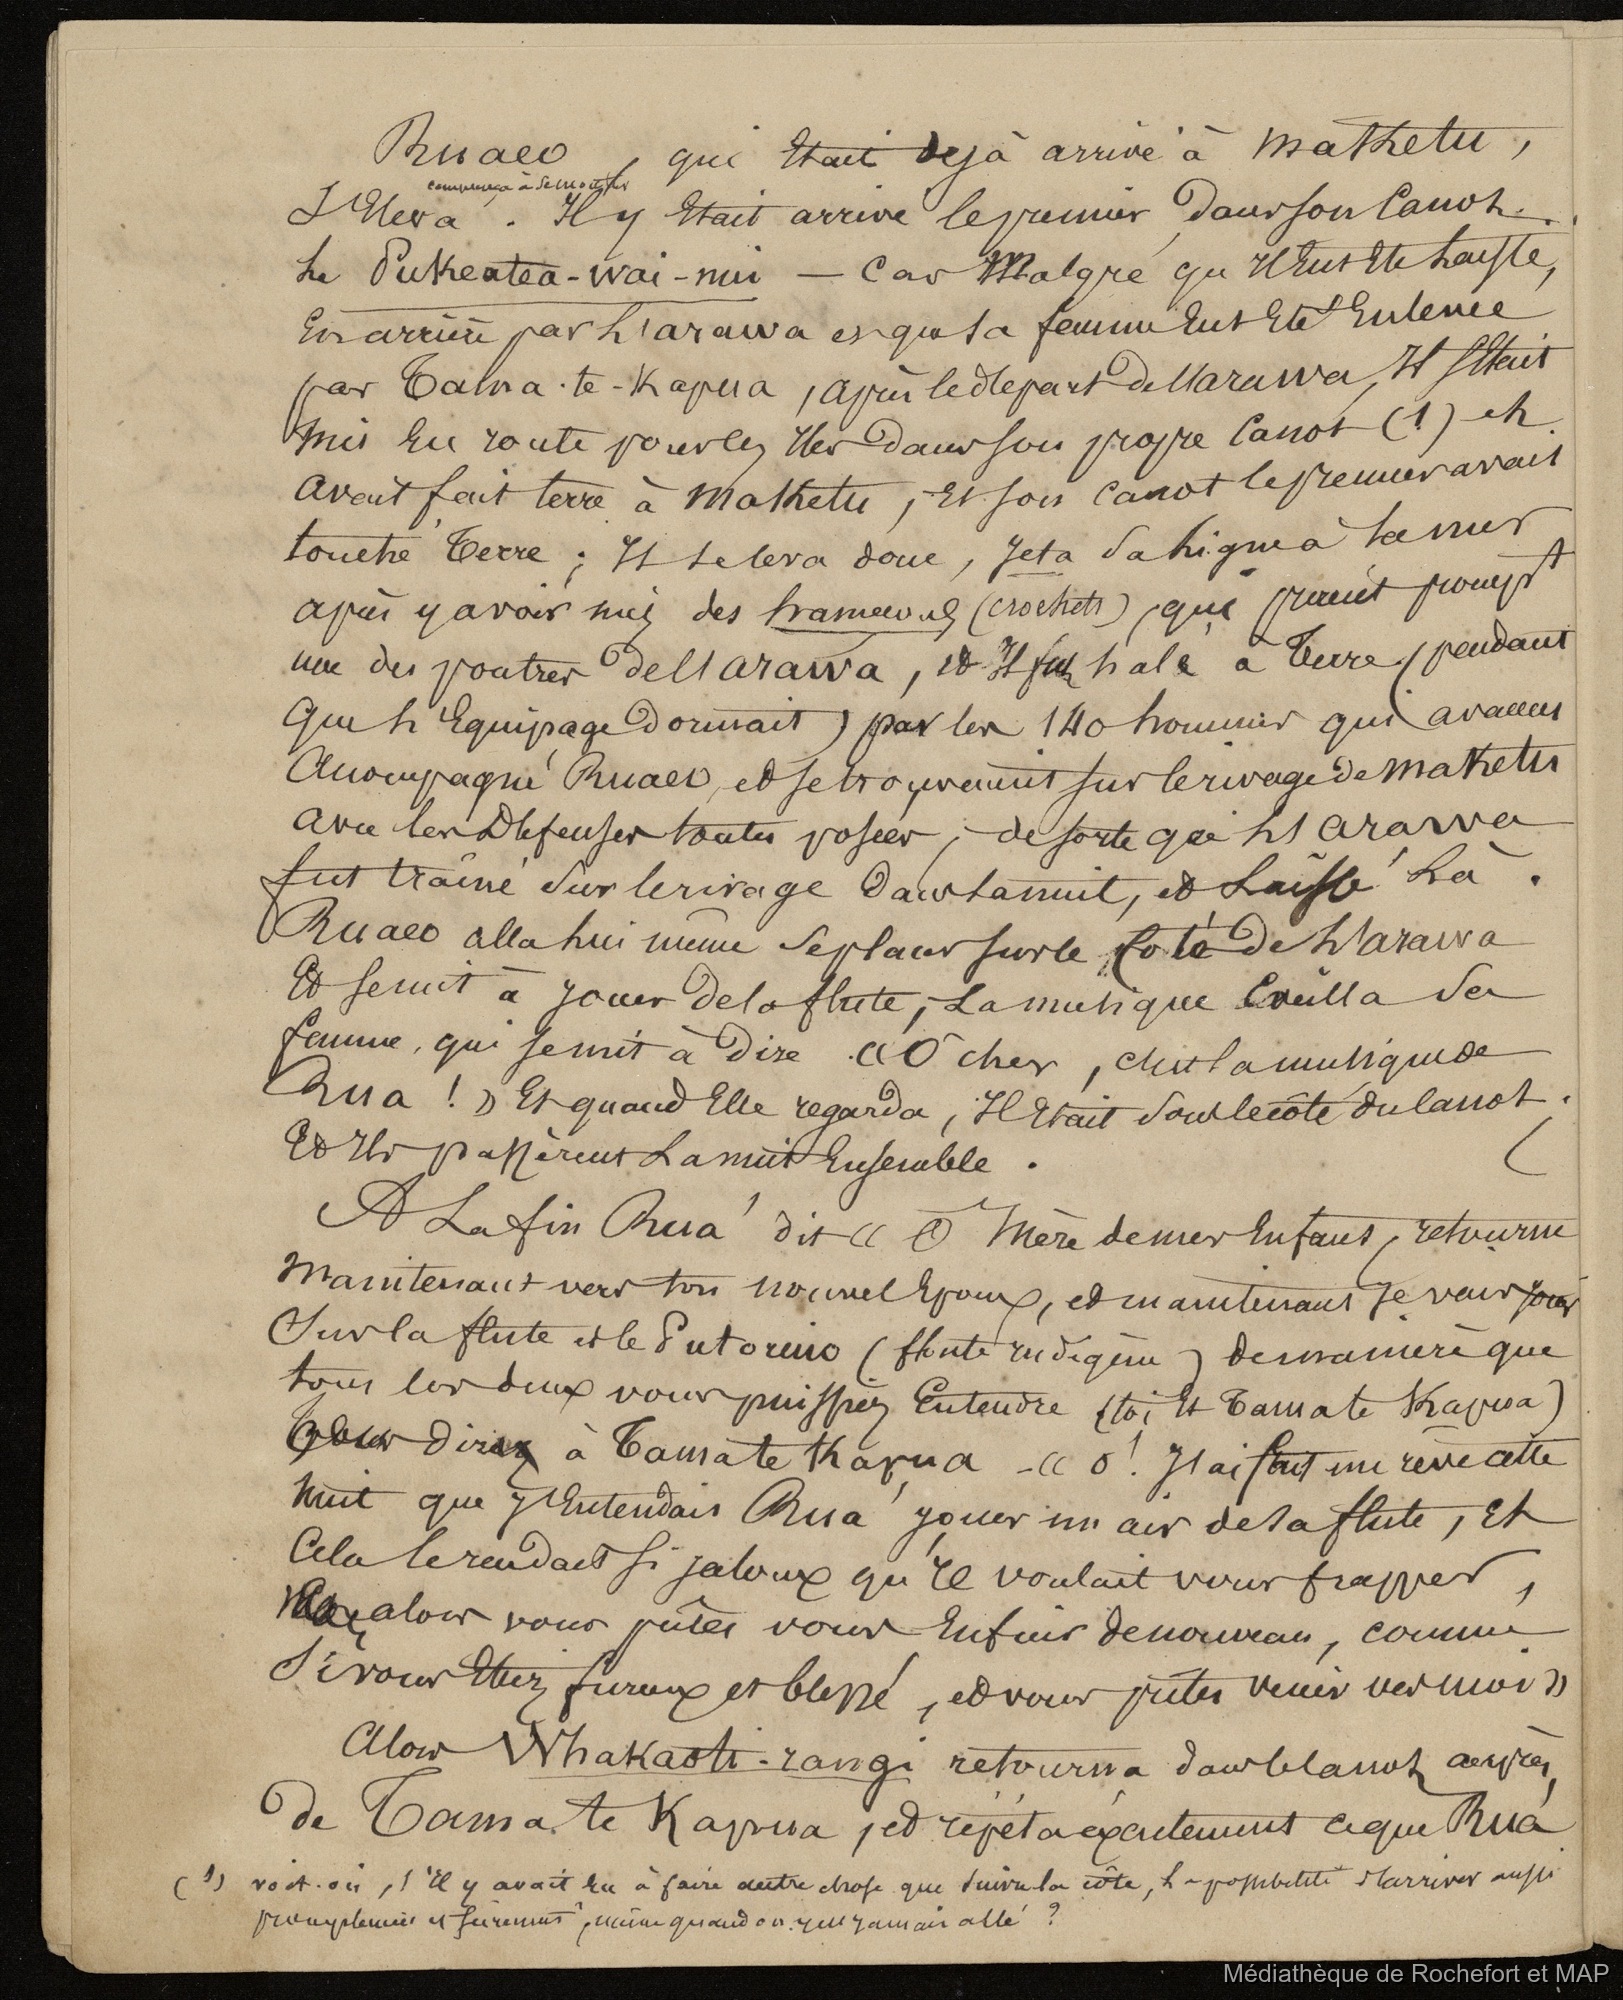 Ruaeo, qui Etait dejà arrivé à Mathetu,
commença à se montrer
S'Eleva. Il y Etait arrivé le premier dans son Canot.
le Pukeatea-wai-nui — Car Malgré qu'il Eut Eté laissé,
En arrière par l'arawa et que sa femme Eut Eté Enlevée
par Tama-te-Kapua, après le depart de l'arawa, Il s'Etait
mis En route pour les Iles dans son propre Canot (1) et
avait fait terre à Maketu, Et son Canot le premier avait
touché Terre; Il se leva donc, jeta sa ligne à la mer
après y avoir mis des hameçons (crochets), qui prirent prompt
une des poutres de l'arawa, et Il fut halé à Terre (pendant
que l'Equipage Dormait) par les 140 hommes qui avaient
Accompagné Ruaeo, et se trouvaient sur le rivage de Maketu
avec les Defenses toutes posées; de sorte que l'arawa
fut traîné sur le rivage dans la nuit, et Laissé Là.
Ruaeo alla lui même se placer sur le coté de l'arawa
Et se mit à jouer de la flute; La musique Eveilla sa
femme, qui se mit à dire « O cher, c'est la musique de
Rua! » Et quand Elle regarda, Il Etait sous le côté du Canot;
Et Ils passèrent La nuit Ensemble.
A La fin Rua dit « O Mère de mes Enfants, retourne
Maintenant vers ton nouvel Epoux, et maintenant je vais jouer
Sur la flute et le Putorino (flute indigène) de manière que
tous les deux vous puissiez Entendre (toi Et Tama te Kapua)
dire à Tama te Kapua « O! J'ai fait un rêve cette
Nuit que j'Entendais Rua jouer un air de sa flute, Et
Cela le rendait si jaloux qu'il voulait vous frapper,
alors vous pûtes vous Enfuir de nouveau, comme
Si vous Etiez furieux et blessé, et vous pûtes venir vers moi »
Alors Whakaoti-rangi retourna dans le Canot auprès
de Tama te Kapua, et répéta exactement ce que Rua
(1) voit-on, s'il y avait Eu à faire autre chose que suivre la côte, la possibilité d'arriver aussi
promptement et surement, même quand on y est jamais allé?
Médiathèque de Rochefort et MAP